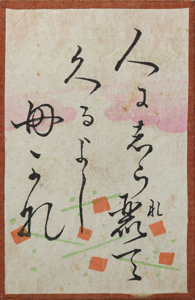 人にしられて
くるよし
もかな